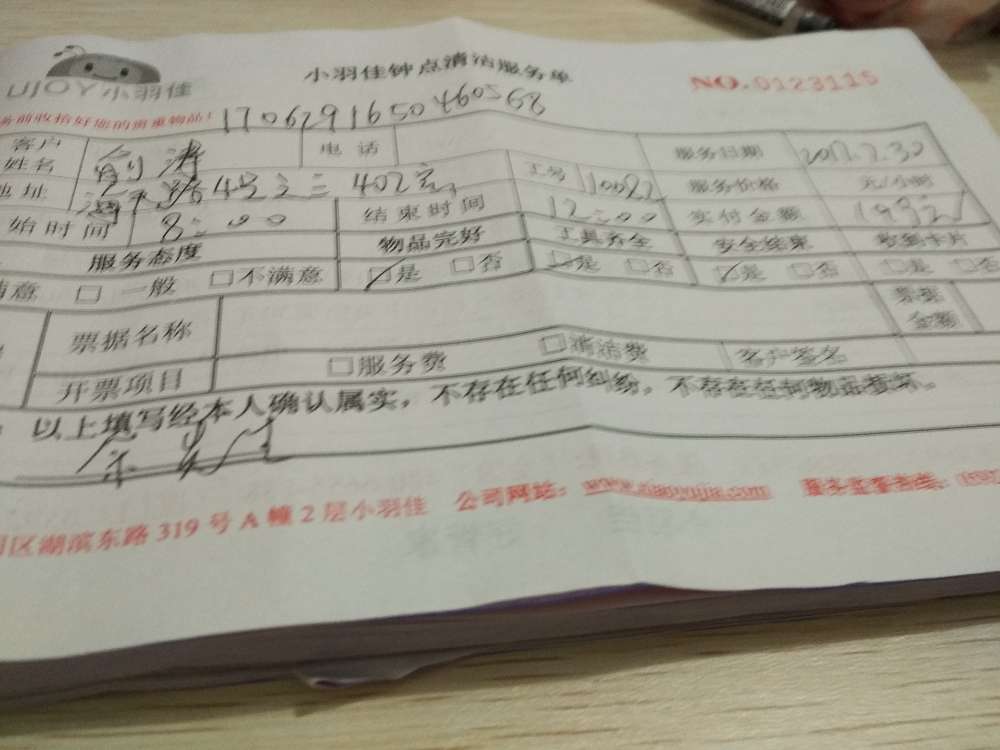 UJOY小羽佳
小羽佳钟点清洁服务单
NO.0123115
务前收拾好您的贵重物品!
170629165046056
客户姓名 涛 电话 服务日期 2017.7.30
地址 路4号之三 402室 工号 服务价格 元/小时
始时间 8:00 结束时间 12:00 实付金额
服务态度 物品完好 工具齐全 安全结束 收到卡片
满意 □ 一般 □不满意 ☑是 □否 ☑是 □否 ☑是 □否 □是 □否
票据名称 票据金额
开票项目 □服务费 □清洁费 客户签名
以上填写经本人确认属实，不存在任何纠纷，不存在任何物品损坏。
区湖滨东路319号A幢2层小羽佳 公司网站：www.xiaoyujia.com 服务监督热线：